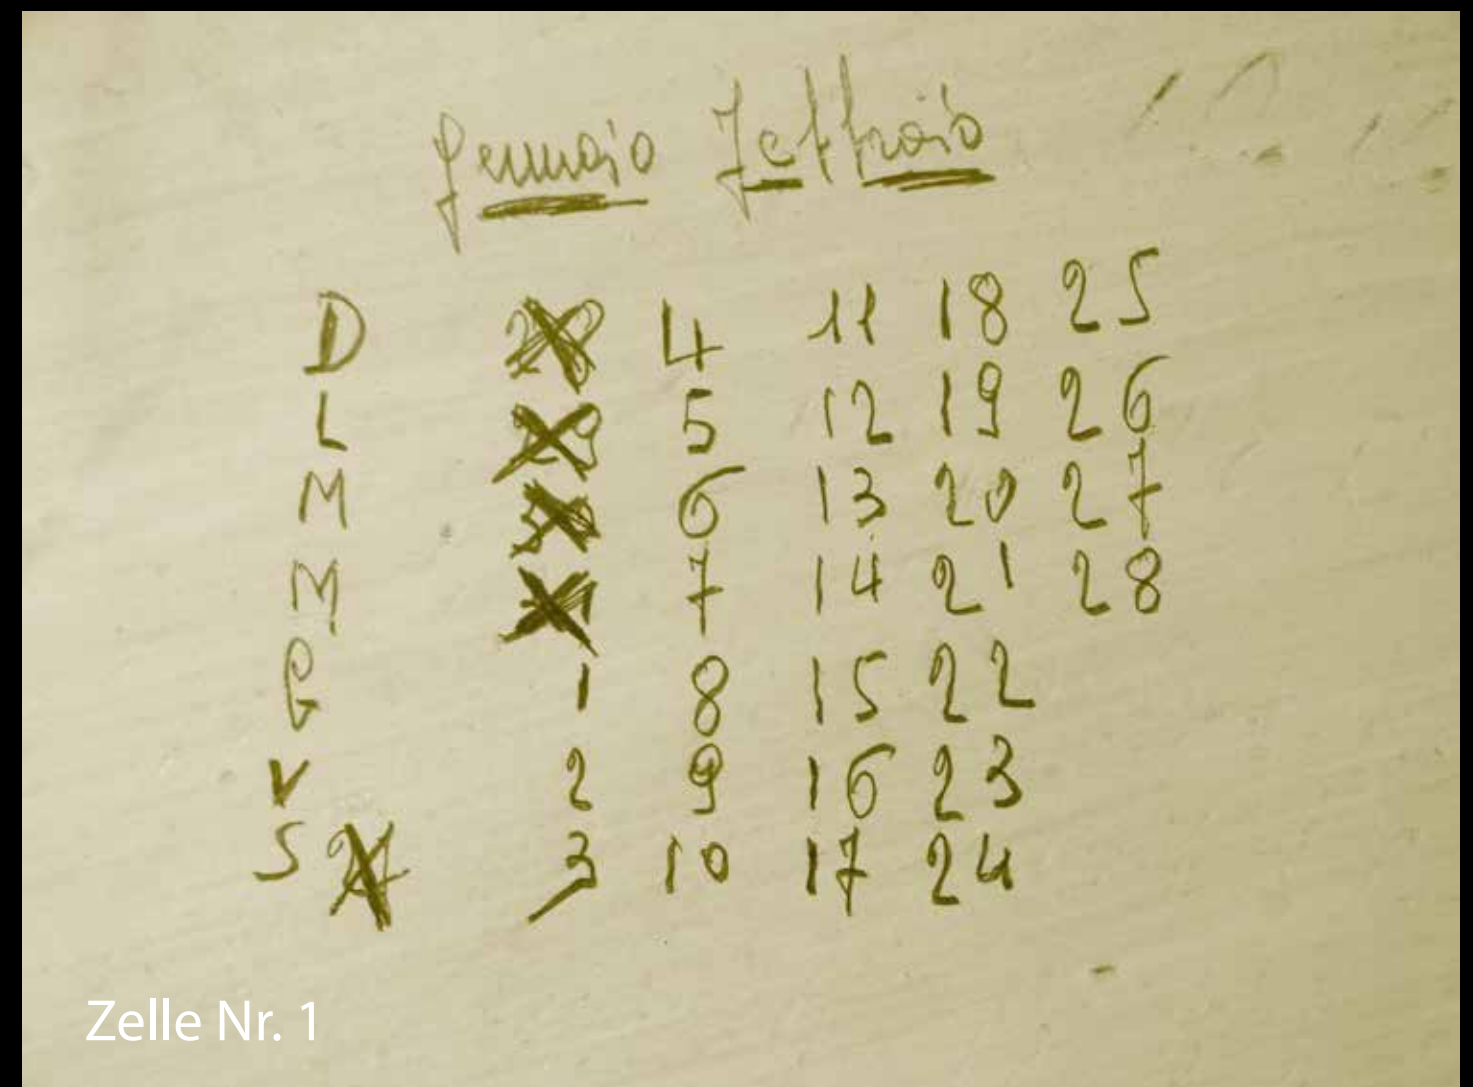 Gennaio Febbraio
D 28 4 11 18 25
L 29 5 12 19 26
M 30 6 13 20 27
M 31 7 14 21 28
G 1 8 15 22
V 2 9 16 23
S 27 3 10 17 24
Zelle Nr. 1